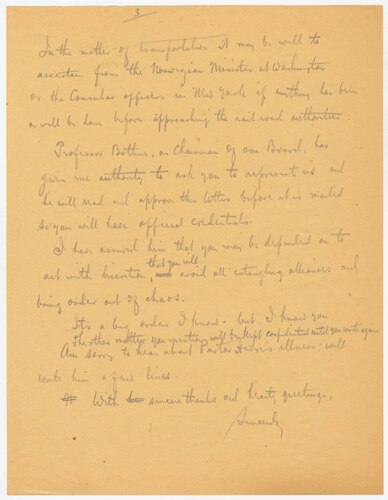 3
In the matter of transportation it may be well to
ascertain from the Norwegian Minister at Washington
or the Consular officers in New York if anything has been
or will be done before approaching the railroad authorities
Professor Bothne, as Chairman of our Board, has
given me authority to ask you to represent us and
he will read and approve this letter before it is mailed
so you will have official credentials.
I have assured him that you may be depended on to
act with discretion, that you will avoid all entangling alliances and
bring order out of chaos.
It's a big order I know - but I know you
The other matters you mention will be kept confidential until you write again
Am sorry to hear about Pastor illness: will
write him a few lines.
With sincere thanks and hearty greetings,
Sincerely